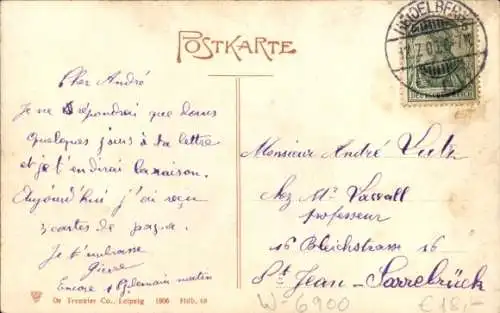 HEIDELBERG
POSTKARTE
Cher André
Je ne répondrai que dans
quelques jours à ta lettre
et je t'en dirai la raison.
Aujourd'hui j'ai reçu
3 cartes de papa.
Je t'embrasse
Pierre
Encore St Germain matin
Monsieur André
Chez Mr
professeur
16 Bleichstrasse 16
St Jean - Sarrebrück
Dr Trenkler Co., Leipzig 1906
W-6900
€18,-